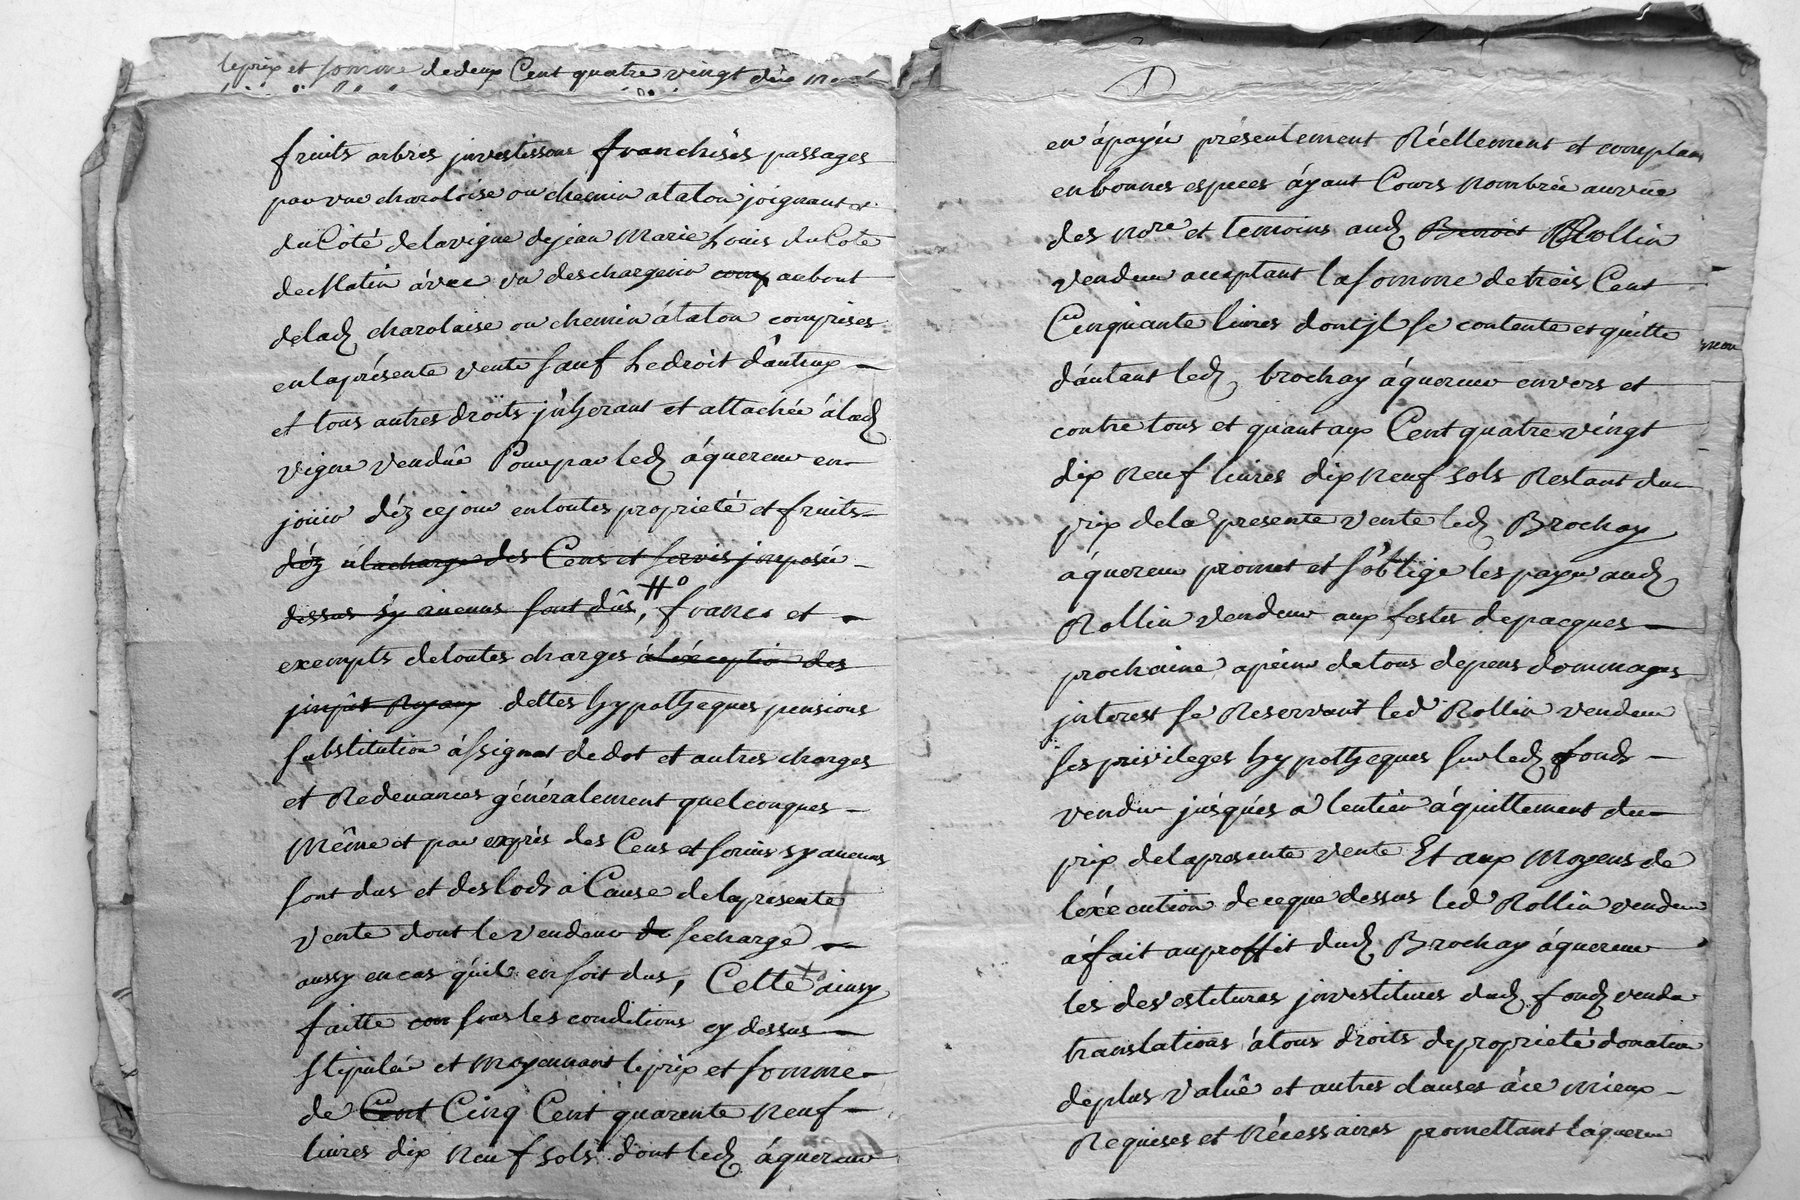 le prix et somme de deux Cent quatre vingt dix neuf
fruits arbres jnvestissons franchises passages
par une charoloise ou chemin a talon joignant et
du Côté de la vigne de jean Marie Louis du Cote
de Matin avec un deschargeoir au bout
de lad charolaise ou chemin á talon comprises
en la présente vente sauf Le droit d'autruy
et tous autres droits jnherant et attachée á lad
vigne vendûe Pour par led áquereur en
joüir déz ce jour en toutes proprieté et fruits
déz a la charge des Cens et servis jmposée
dessus sy aucuns sont dûs, francs et
exempts de toutes charges á l'exception des
jmpôt Royaux dettes hypotheques pensions
substitution assignat de dot et autres charges
et Redevances généralement quelconques
Même et par exprés des Cens et servis sy aucuns
sont dus et des lods a Cause de la presente
vente dont le vendeur de se charge
aussy en cas quil en soit dus, Cette ainsy
faitte con sous les conditions cy dessus
stipulée et Moyennant le prix et somme
de Cent Cinq Cent quarente Neuf
livres dix Neuf sols dont led áquereur
en á payé présentement Réellement et comptan
en bonnes especes áyant Cours Nombrée au vûe
des Nore et temoins aud Benoit Rollin
vendeur acceptant la somme de trois Cent
Cinquante livres dont jl se contente et quitte
d'autant led brochay áquereur envers et
contre tous et quant aux Cent quatre vingt
dix Neuf livres dix Neuf sols Restant du
prix de la presente vente led Brochay
áquereur promet et s'oblige les payer aud
Rollin vendeur aux festes de pacques
prochaine a peine de tous depens dommages
jnterest se Reservant led Rollin vendeur
ses privileges hypotheques sur led fonds
vendu jusqués a lentier áquittement du
prix de la presente vente Et aux Moyens de
l'exécution de ce que dessus led Rollin vendeur
á fait au proffit dud Brochay áquereur
les devestitures jnvestitures dud fond vendu
translations á tous droits de proprieté donation
de plus valuë et autres clauses á ce mieux
Requises et Nécessaires promettant láquereur